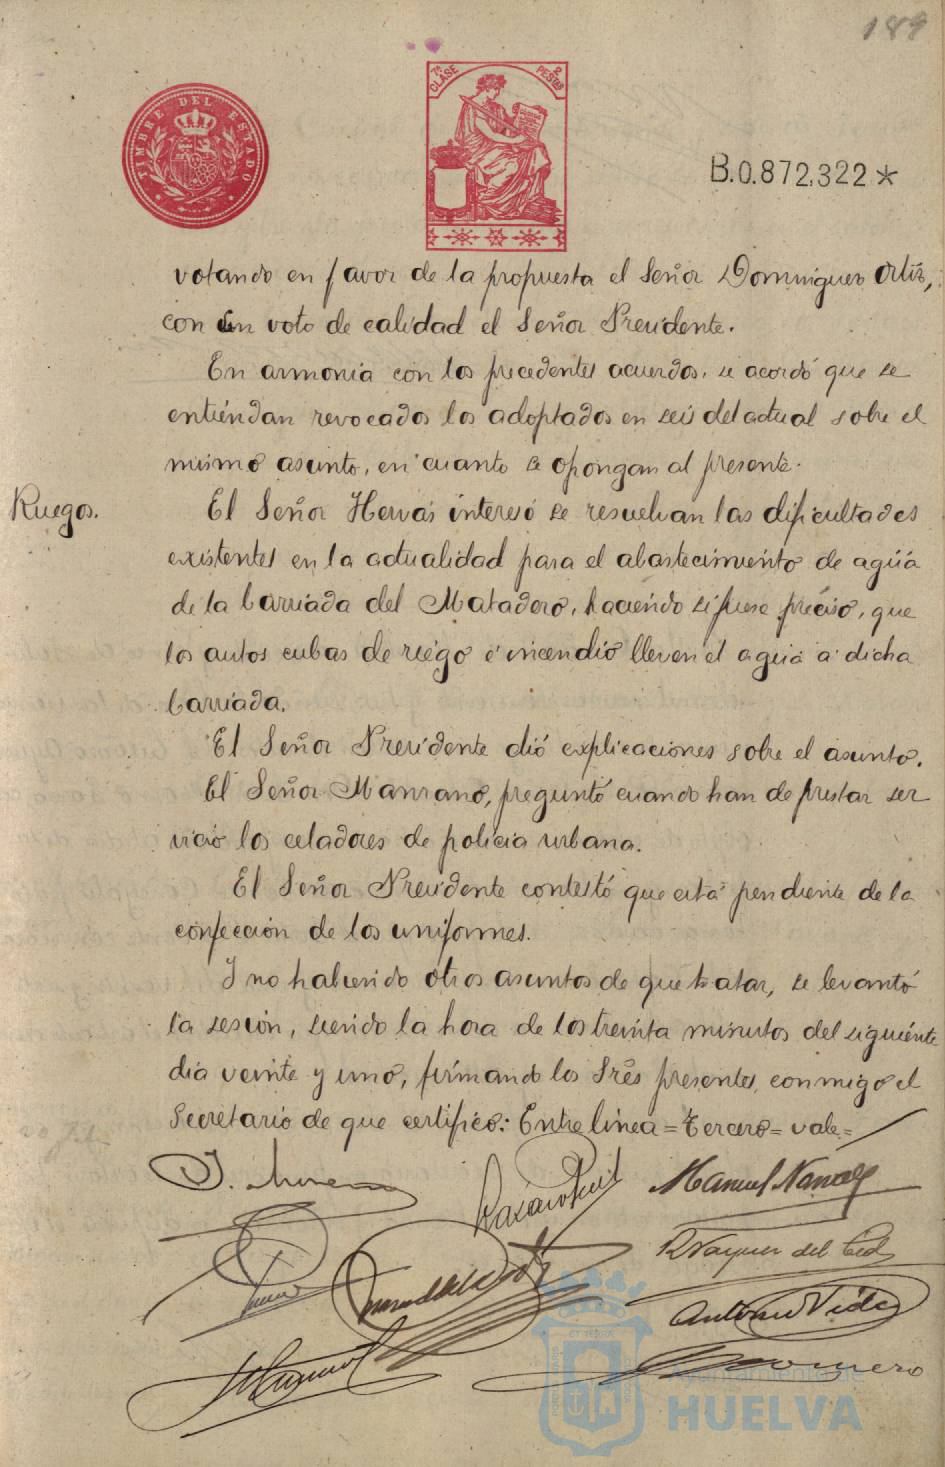 189
TIMBRE DEL ESTADO
7ª CLASE
2 PESTAS
B.0.872.322*
votando en favor de la propuesta el Señor Dominguez Ortiz,
con un voto de calidad el Señor Presidente.
En armonia con los precedentes acuerdos, se acordó que se
entiendan revocados los adoptados en seis del actual sobre el
mismo asunto, en cuanto se opongan al presente.
Ruegos.
El Señor Hervás interesó se resuelvan las dificultades
existentes en la actualidad para el abastecimiento de agua
de la barriada del Matadero, haciendo si fuese preciso, que
los autos cubas de riego é incendio lleven el agua á dicha
barriada.
El Señor Presidente dió explicaciones sobre el asunto.
El Señor Manzano, preguntó cuando han de prestar ser
vicio los celadores de policia urbana.
El Señor Presidente contestó que está pendiente de la
confección de los uniformes.
Y no habiendo otros asuntos de que tratar, se levantó
la sesión, siendo la hora de los treinta minutos del siguiente
dia veinte y uno, firmando los Sres presentes, conmigo el
Secretario de que certifico: Entre linea = tercero = vale =
Manuel
R Vazquez del
Antonio Vides
Romero
Ayuntamiento de
HUELVA